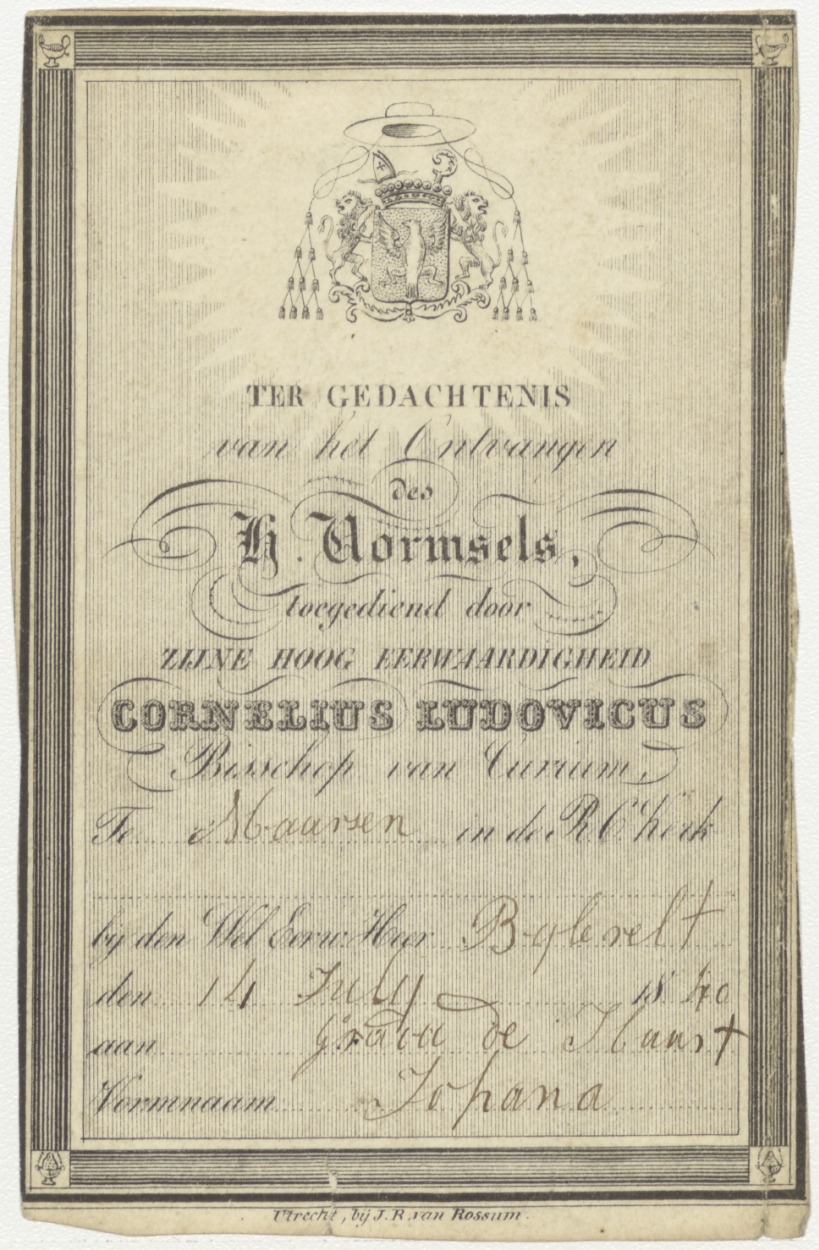 TER GEDACHTENIS
van het Ontvangen
des
H. Vormsels,
toegediend door
ZIJNE HOOG EERWAARDIGHEID
CORNELIUS LUDOVICUS
Bisschop van Curium,
Te Maarsen in de R. C. Kerk
by den Wel Eerw. Heer
den 14 July 1840
aan de Haart
Vormnaam Johana
Utrecht, bij J. R. van Rossum.